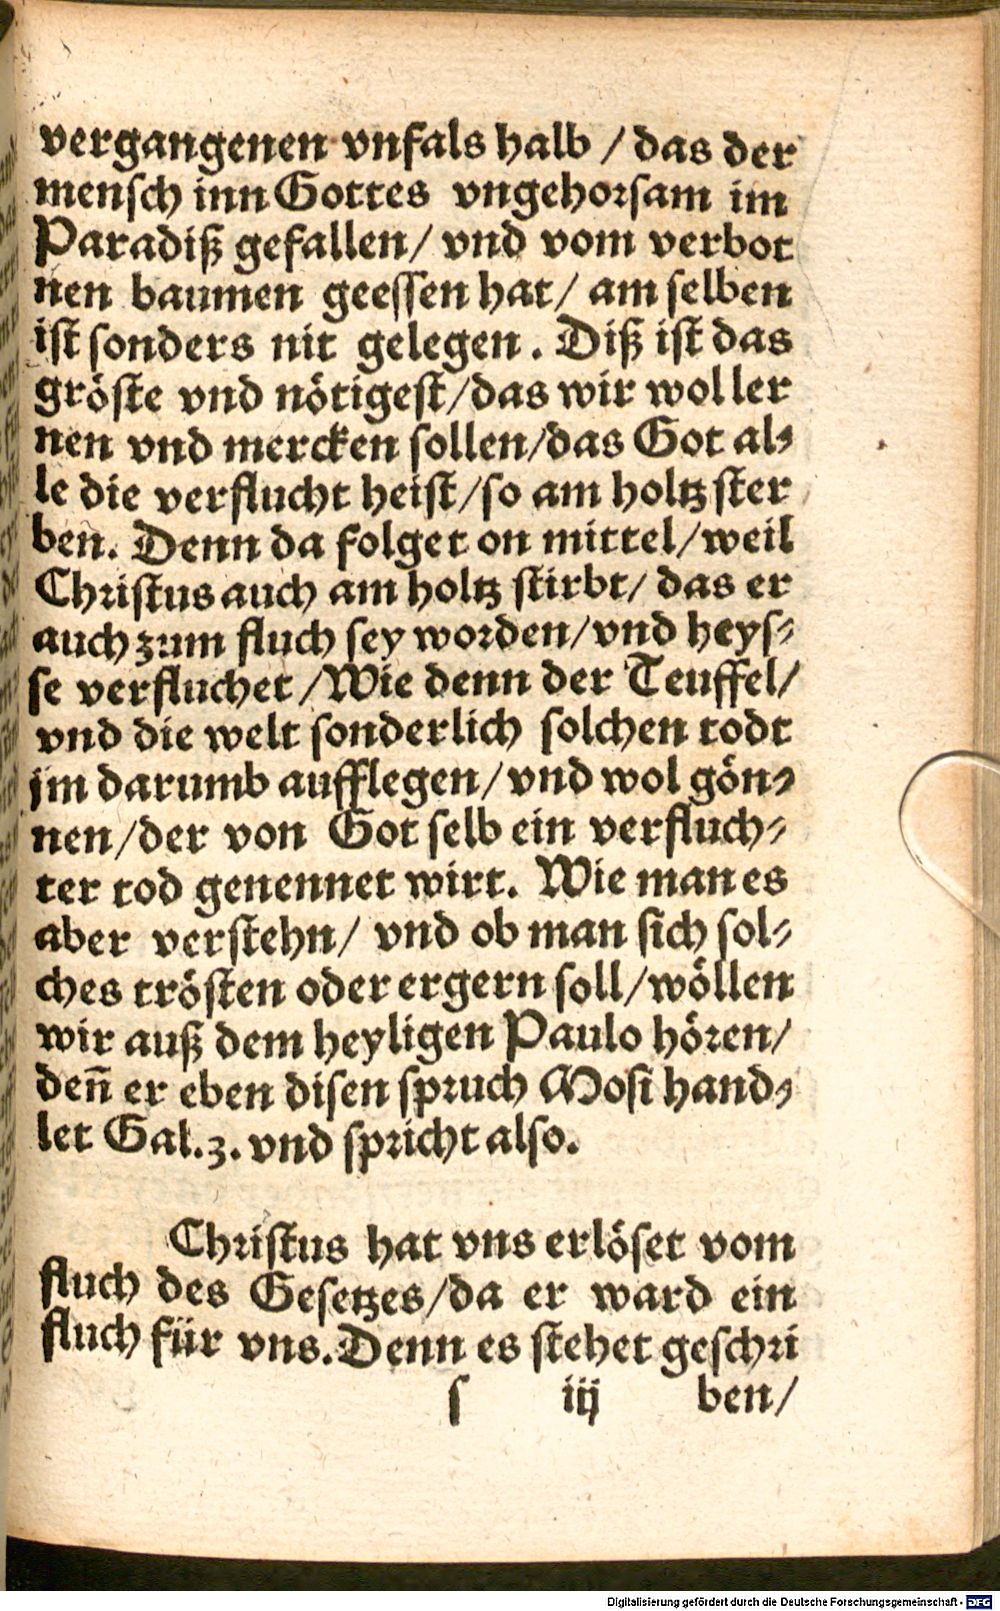 vergangenen vnfals halb / das der
mensch inn Gottes vngehorsam im
Paradiß gefallen / vnd vom verbot
nen baumen geessen hat / am selben
ist sonders nit gelegen . Diß ist das
gröste vnd nötigest / das wir wol ler
nen vnd mercken sollen / das Got al⸗
le die verflucht heist / so am holtz ster
ben. Denn da folget on mittel / weil
Christus auch am holtz stirbt / das er
auch zum fluch sey worden / vnd heys⸗
se verfluchet / Wie denn der Teuffel /
vnd die welt sonderlich solchen todt
jm darumb aufflegen / vnd wol gön⸗
nen / der von Got selb ein verfluch⸗
ter tod genennet wirt. Wie man es
aber verstehn / vnd ob man sich sol⸗
ches trösten oder ergern soll / wöllen
wir auß dem heyligen Paulo hören /
deñ er eben disen spruch Mosi hand⸗
let Gal. 3. vnd spricht also.
Christus hat vns erlöset vom
fluch des Gesetzes / da er ward ein
fluch für vns. Denn es stehet geschri
s iij ben /
Digitalisierung gefördert durch die Deutsche Forschungsgemeinschaft - DFG